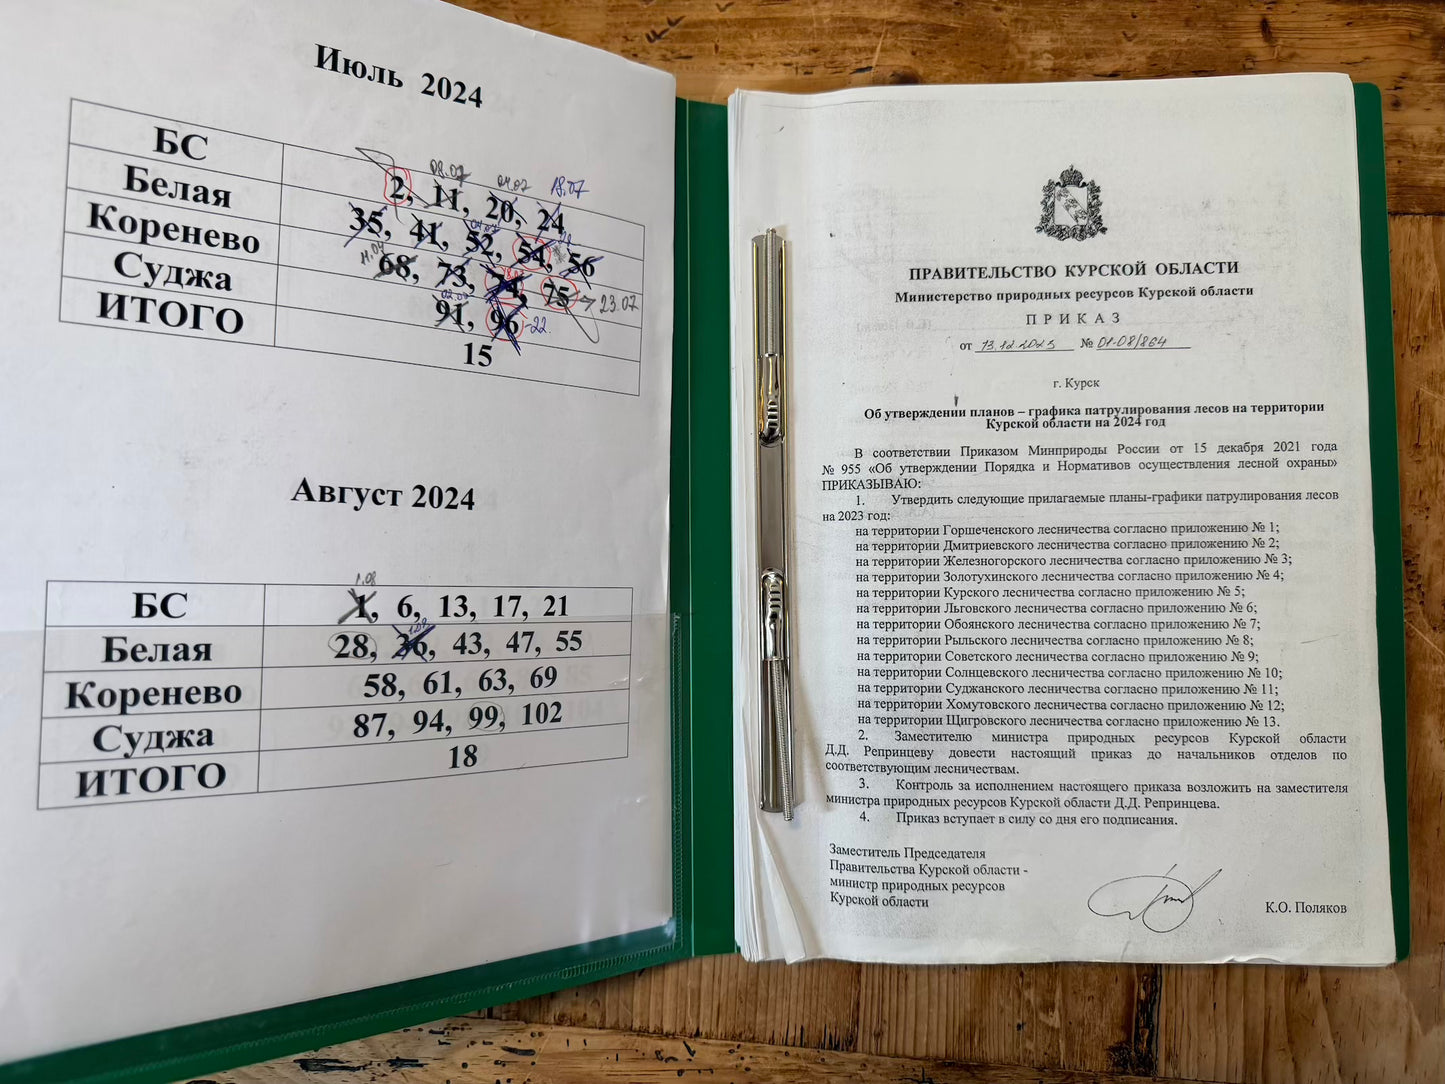 Июль 2024
БС
2, 11, 20, 24
08.07
04.07
18.07
Белая
35, 41, 52, 54, 56
Коренево
68, 73, 74, 75
23.07
Суджа
91, 96
-22.
ИТОГО
15
Август 2024
1.08
БС
1, 6, 13, 17, 21
Белая
28, 36, 43, 47, 55
Коренево
58, 61, 63, 69
Суджа
87, 94, 99, 102
ИТОГО
18
ПРАВИТЕЛЬСТВО КУРСКОЙ ОБЛАСТИ
Министерство природных ресурсов Курской области
ПРИКАЗ
от 13.12.2023 № 01-08/864
г. Курск
Об утверждении планов – графика патрулирования лесов на территории
Курской области на 2024 год
В соответствии Приказом Минприроды России от 15 декабря 2021 года
№ 955 «Об утверждении Порядка и Нормативов осуществления лесной охраны»
ПРИКАЗЫВАЮ:
1. Утвердить следующие прилагаемые планы-графики патрулирования лесов
на 2023 год:
на территории Горшеченского лесничества согласно приложению № 1;
на территории Дмитриевского лесничества согласно приложению № 2;
на территории Железногорского лесничества согласно приложению № 3;
на территории Золотухинского лесничества согласно приложению № 4;
на территории Курского лесничества согласно приложению № 5;
на территории Льговского лесничества согласно приложению № 6;
на территории Обоянского лесничества согласно приложению № 7;
на территории Рыльского лесничества согласно приложению № 8;
на территории Советского лесничества согласно приложению № 9;
на территории Солнцевского лесничества согласно приложению № 10;
на территории Суджанского лесничества согласно приложению № 11;
на территории Хомутовского лесничества согласно приложению № 12;
на территории Щигровского лесничества согласно приложению № 13.
2. Заместителю министра природных ресурсов Курской области
Д.Д. Репринцеву довести настоящий приказ до начальников отделов по
соответствующим лесничествам.
3. Контроль за исполнением настоящего приказа возложить на заместителя
министра природных ресурсов Курской области Д.Д. Репринцева.
4. Приказ вступает в силу со дня его подписания.
Заместитель Председателя
Правительства Курской области -
министр природных ресурсов
Курской области
К.О. Поляков